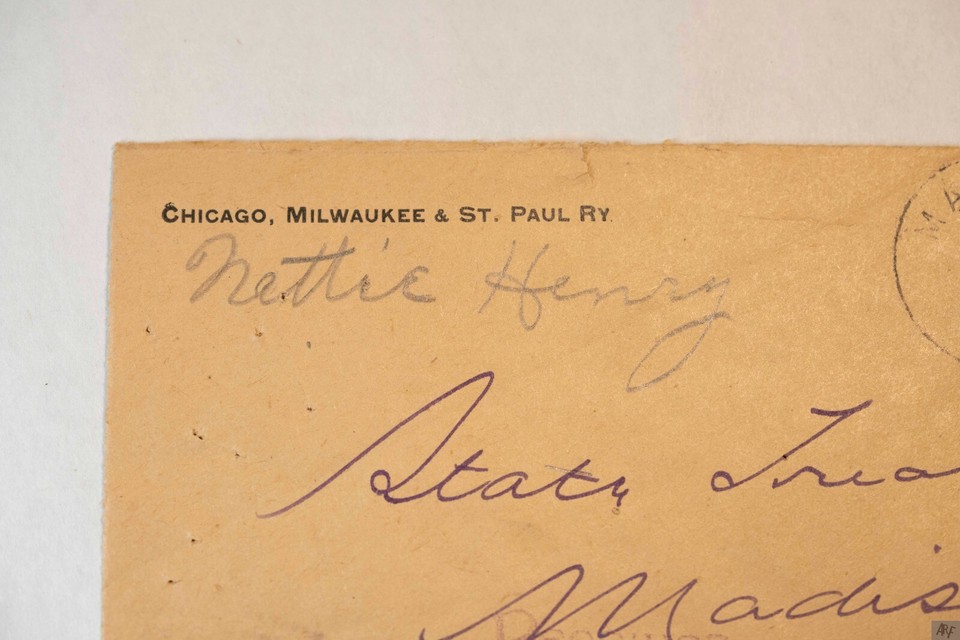 CHICAGO, MILWAUKEE & ST. PAUL RY.
MA
Nettie Henry
State Trea
Madis
ARF